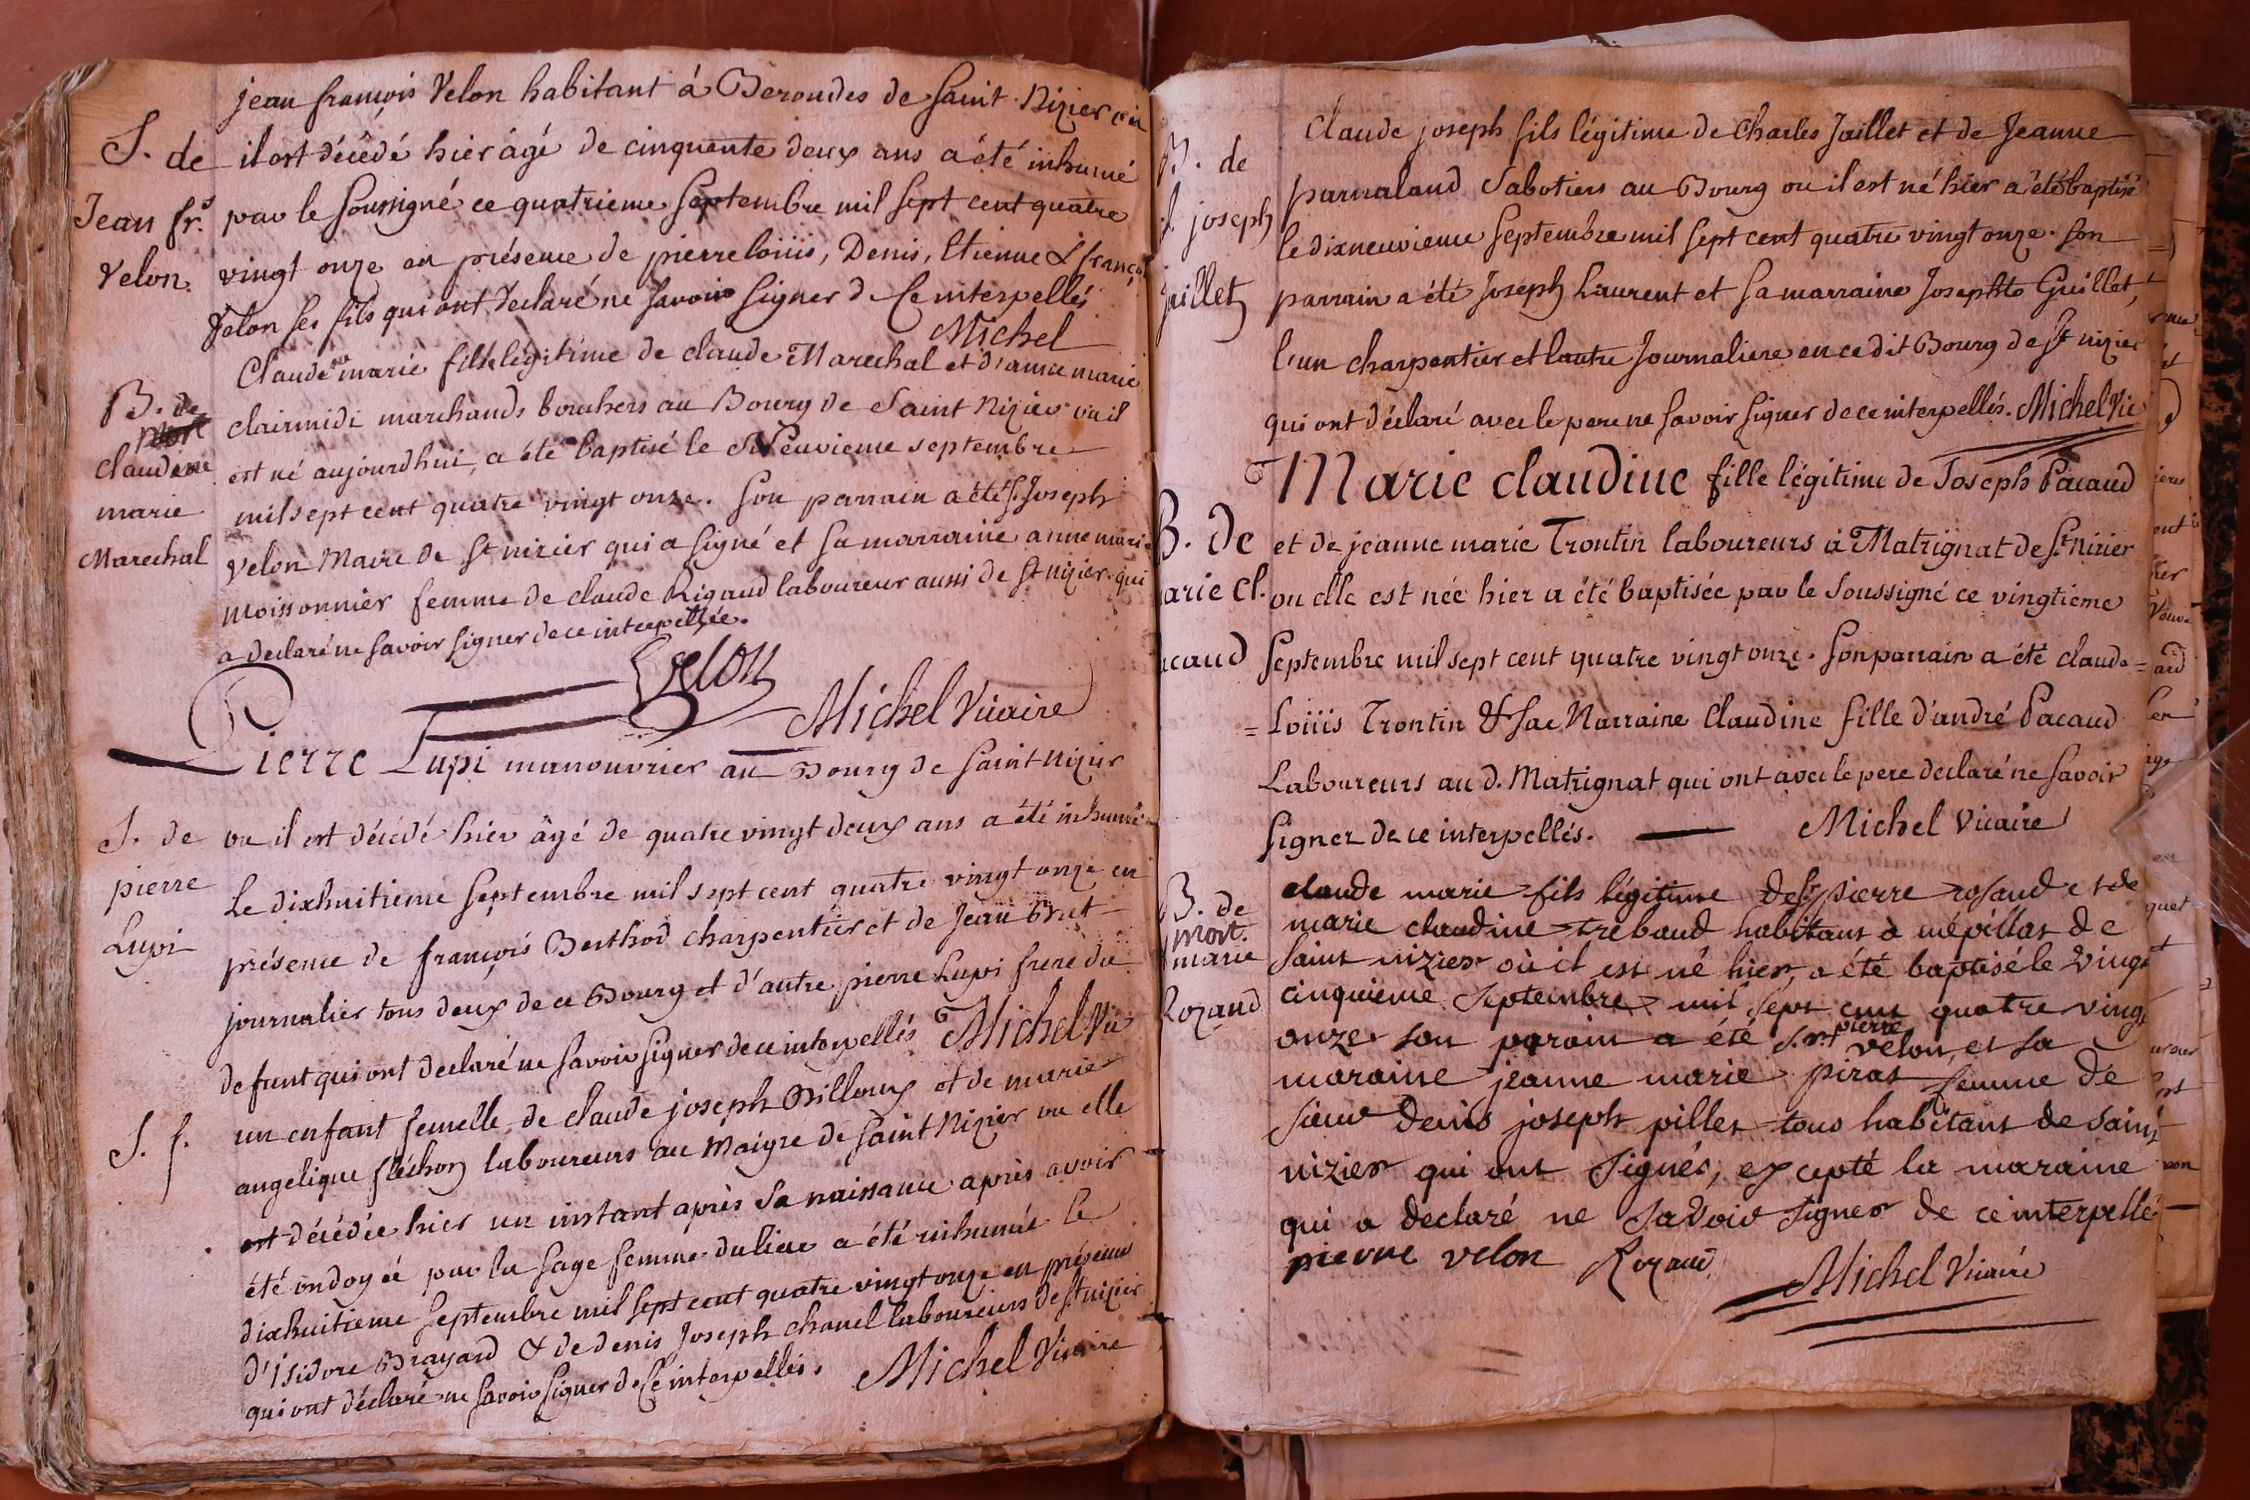 jean françois Velon habitant á Beroudes de saint Nizier où
S. de
il est décédé hier âgé de cinquante deux ans a été inhumé
Jean fr.s
par le soussigné ce quatrieme Septembre mil sept cent quatre
Velon.
vingt onze en présence de pierre loüis, Denis, Etienne & franç
Velon ses fils qui ont declaré ne savoir signer de ce interpellés
Michel
Claudine marie fille légitime de claude Marechal et d'anne marie
B. de
clairmidi marchands bouchers au Bourg de Saint Nizier ou il
claudine
est né aujourdhui, a été baptisé le Neuvieme septembre
marie
mil sept cent quatre vingt onze. son parrain a été S. Joseph
Marechal
velon Maire de st nizier qui a signé et sa marraine anne marie
moissonnier femme de claude Rigaud laboureur aussi de st nizier qui
a declaré ne savoir signer de ce interpellée.
Velon
Michel Vicaire
Pierre Lupi manouvrier au Bourg de saint nizier
S. de
ou il est décédé hier âgé de quatre vingt deux ans a été inhumé
pierre
le dixhuitieme septembre mil sept cent quatre vingt onze en
Lupi
présence de françois Berthod charpentier et de Jean Brut
journalier tous deux de ce Bourg et d'autre pierre Lupi frere du
defunt qui ont declaré ne savoir signer de ce interpellés Michel Vic
S. f.
un enfant femelle de claude joseph Billoux et de marie
angelique fléchon laboureurs au Maigre de saint Nizier ou elle
est décédée hier un instant après sa naissance après avoir
été ondoyée par la sage femme du lieu a été inhumée le
dixhuitieme septembre mil sept cent quatre vingt onze en présence
d'isidore Brayard & de denis Joseph chanel laboureurs de st nizier
qui ont déclaré ne savoir signer de ce interpellés. Michel Vicaire
claude joseph fils légitime de Charles Jaillet et de Jeanne
B. de
parnaland Sabotiers au Bourg ou il est né hier a été baptisé
joseph
le dixneuvieme septembre mil sept cent quatre vingt onze. son
jaillet
parrain a été Joseph Laurent et sa marraine Josephte Guillet,
l'un charpentier et lautre Journaliere en ce dit Bourg de st nizier
qui ont déclaré avec le pere ne savoir signer de ce interpellés. Michel Vic
Marie claudine fille légitime de Joseph Pacaud
B. de
et de jeanne marie Trontin laboureurs à Matrignat de St. Nizier
arie cl.
ou elle est née hier a été baptisée par le Soussigné ce vingtieme
acaud
septembre mil sept cent quatre vingt onze. son parrain a été claude =
= Loüis Trontin & sa Marraine Claudine fille d'andré Pacaud
Laboureurs au d. Matrignat qui ont avec le pere declaré ne savoir
signer de ce interpellés. Michel Vicaire
B. de
claude marie fils légitime de Sr pierre rosand et de
mort.
marie claudine trebaud habitans à mépillat de
marie
saint nizier où il est né hier, a été baptisé le vingt
Rozand
cinquieme septembre mil sept cent quatre vingt
onze son parain a été s.r pierre velon, et sa
maraine jeanne marie piras femme de
sieur denis joseph piller tous habitant de saint
nizier qui ont signés, excepté la maraine
qui a declaré ne savoir signer de ce interpellé
pierre velon Rozand
Michel Vicaire